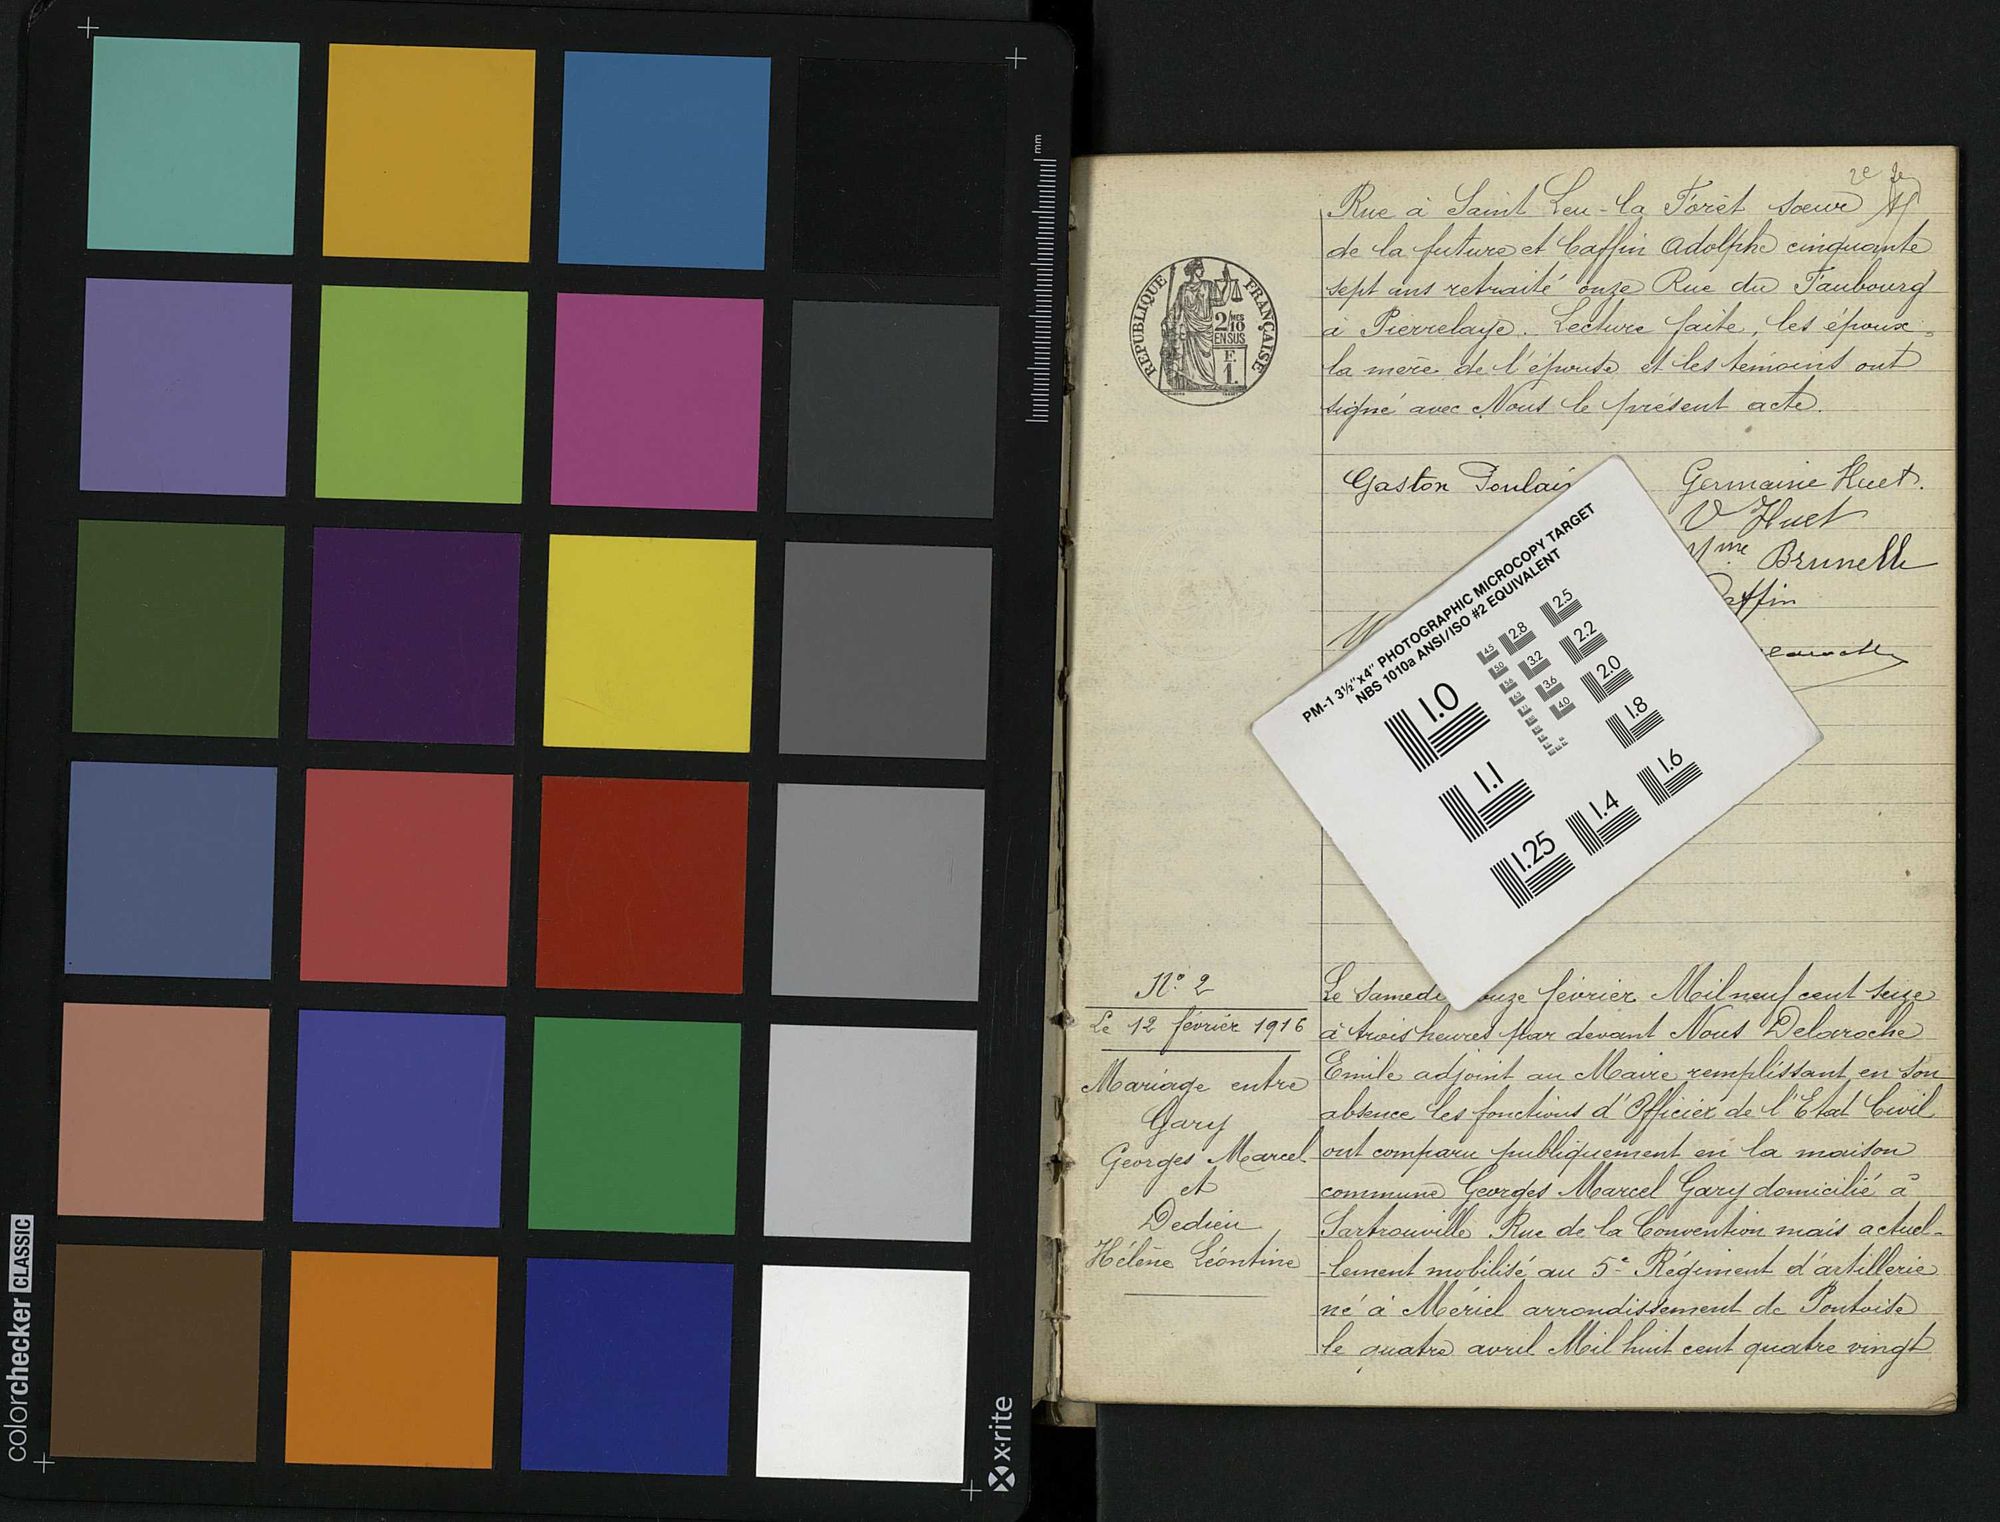 colorchecker CLASSIC
x-rite
mm
2e
Rue à Saint Leu-la Forêt soeur
de la future et Caffin Adolphe cinquante
sept ans retraité onze Rue du Faubourg
à Pierrelaye. Lecture faite, les époux
la mère de l'épouse et les témoins ont
signé avec Nous le présent acte.
REPUBLIQUE FRANÇAISE
2/10MES
EN SUS
F.
1.
Gaston Poulain
Germaine Huet.
V Huet
Mme Brunelle
affin
PM-1 3½"x4" PHOTOGRAPHIC MICROCOPY TARGET
NBS 1010a ANSI/ISO #2 EQUIVALENT
1.0
1.1
1.25
1.4
1.6
1.8
2.0
2.2
2.5
2.8
3.2
3.6
4.0
4.5
5.0
5.6
6.3
N° 2
Le 12 février 1916
Mariage entre
Gary
Georges Marcel
et
Dedieu
Hélène Léontine
Le Samedi ouze février Mil neuf cent seize
à trois heures par devant Nous Delaroche
Emile adjoint au Maire remplissant en son
absence les fonctions d'Officier de l'Etat Civil
ont comparu publiquement en la maison
commune Georges Marcel Gary domicilié à
Sartrouville Rue de la Convention mais actuel-
-lement mobilisé au 5e Régiment d'artillerie
né à Mériel arrondissement de Pontoise
le quatre avril Mil huit cent quatre vingt